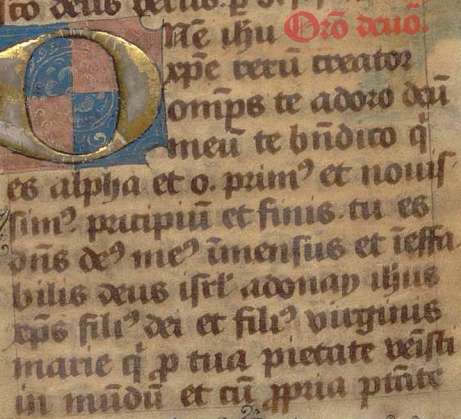 sco deus
Oro deuo.
Dñe ihu
xp̃e rerū creator
omp̃s te adoro deū
meū te bñdico q̇
es alpha et o. primꝰ et nouis
simꝰ. pricipiū et finis. tu es
dñs deꝰ meꝰ ūmensus et ieffa
bilis deus isrl̓ adonay ihus
xp̄s filiꝰ dei et filiꝰ virginis
marie q̇ ꝑ tua pietate veīsti
in mūdū et cū ꝓpria ptāte